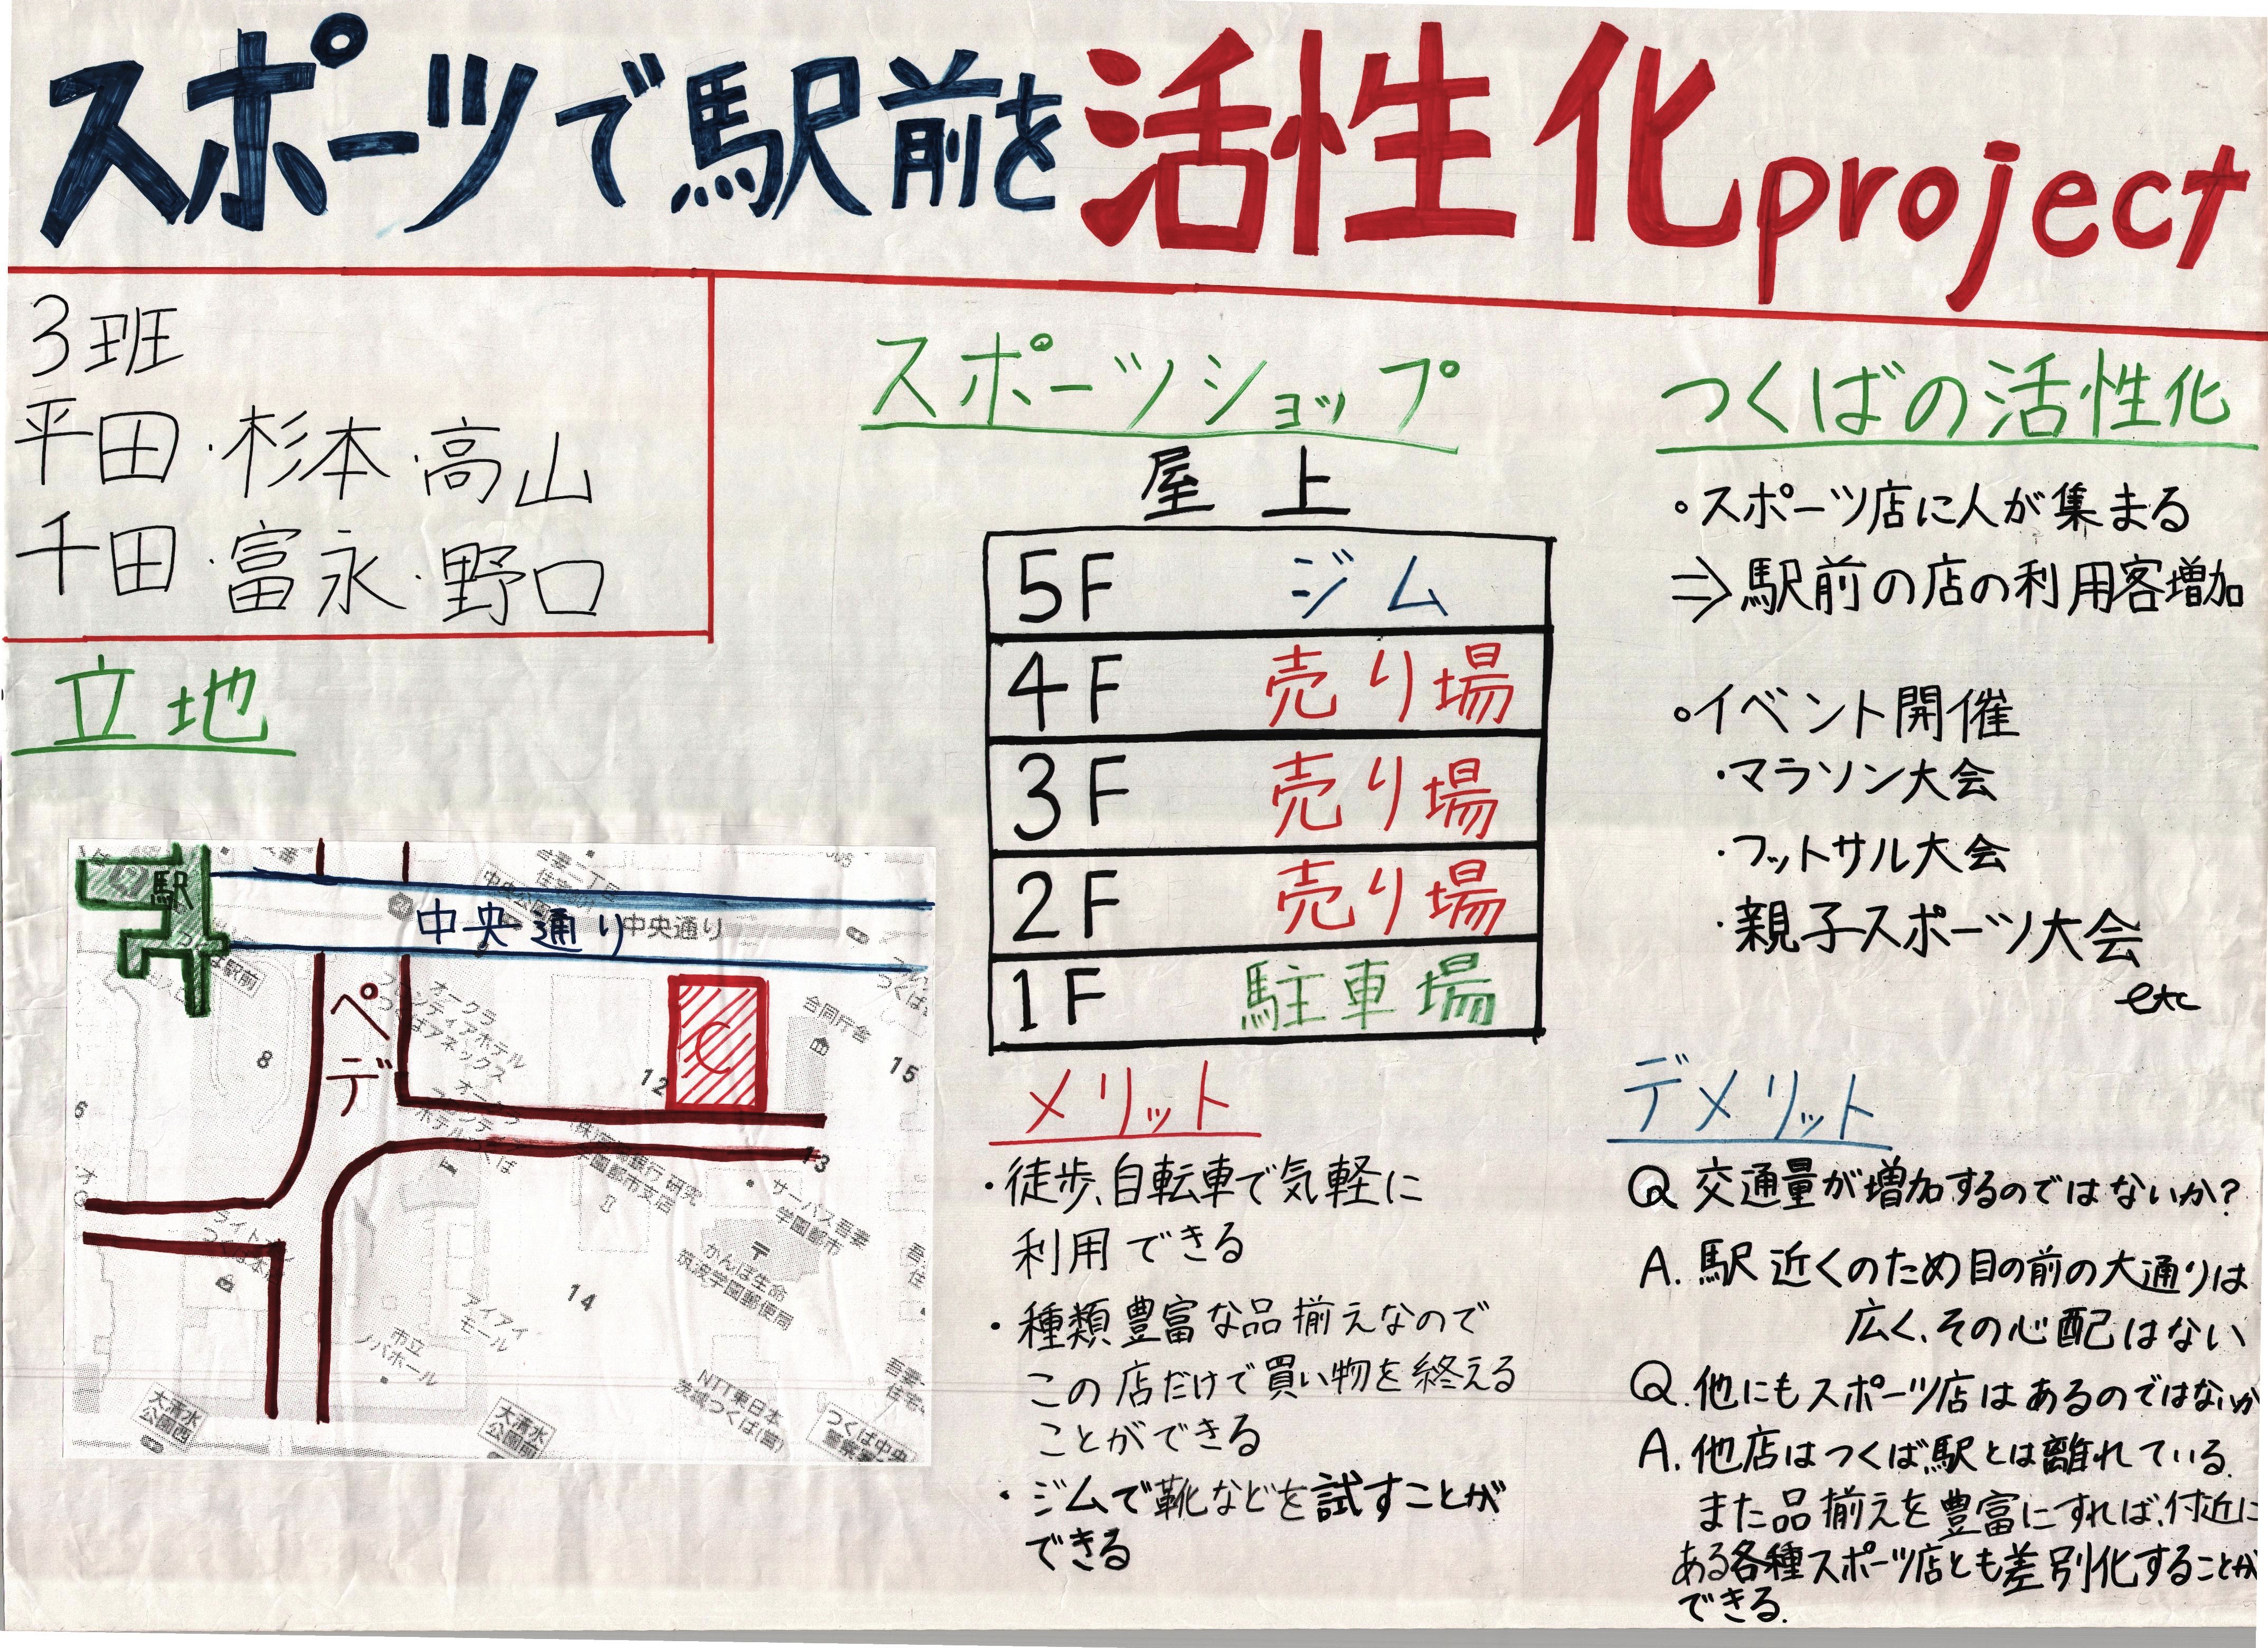 スポーツで駅前を活性化project
3班
平田・杉本・高山
千田・富永・野口
立地
駅
中央通り
中央通り
ペデ
C
8
12
15
6
13
14
合同庁舎
オークラ
フロンティアホテル
つくばアネックス
サーパス吾妻
学園都市
かんぽ生命
筑波学園郵便局
アイアイ
モール
市立
ノバホール
NTT東日本
茨城つくば(営)
大清水
公園西
大清水
公園前
つくば中央
スポーツショップ
屋上
5F ジム
4F 売り場
3F 売り場
2F 売り場
1F 駐車場
メリット
・徒歩、自転車で気軽に
利用できる
・種類豊富な品揃えなので
この店だけで買い物を終える
ことができる
・ジムで靴などを試すことが
できる
つくばの活性化
・スポーツ店に人が集まる
⇒駅前の店の利用客増加
・イベント開催
・マラソン大会
・フットサル大会
・親子スポーツ大会
etc
デメリット
Q 交通量が増加するのではないか?
A. 駅近くのため目の前の大通りは
広く、その心配はない
Q. 他にもスポーツ店はあるのではないか
A. 他店はつくば駅とは離れている.
また品揃えを豊富にすれば、付近に
ある各種スポーツ店とも差別化することが
できる.